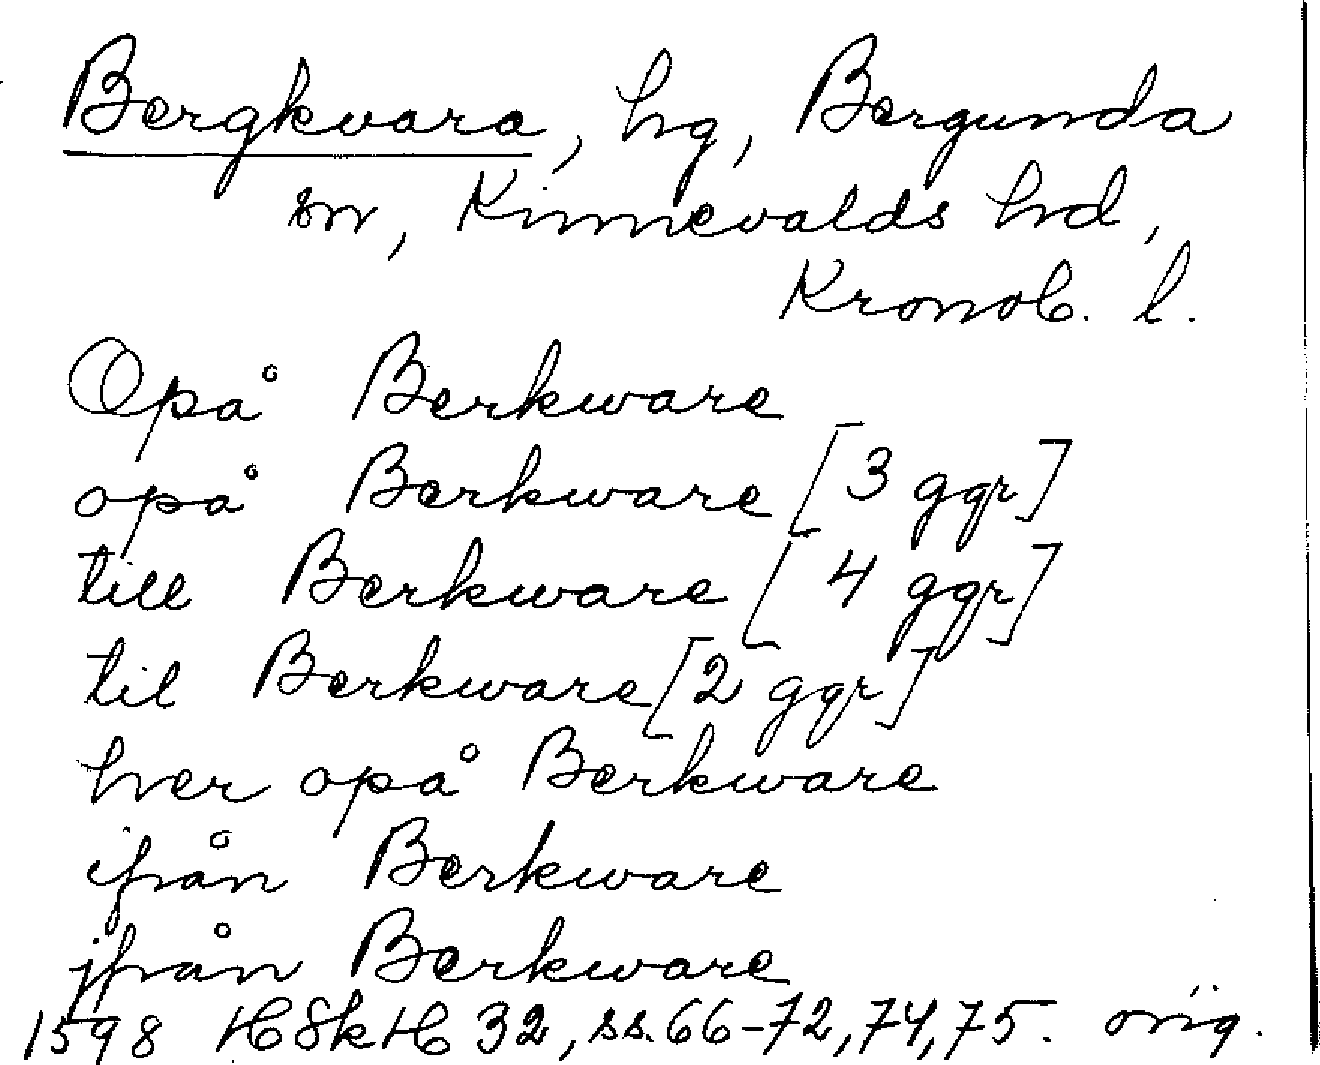 Bergkvara, hg, Bergunda
sn, Kinnevalds hd,
Kronob. l.
Opå Berkware
opå Berkware [3 ggr]
till Berkware [4 ggr]
til Berkware [2 ggr]
her opå Berkware
ifrån Berkware
jfrån Berkware
1598 HSkH 32, ss. 66-72, 74, 75. orig.